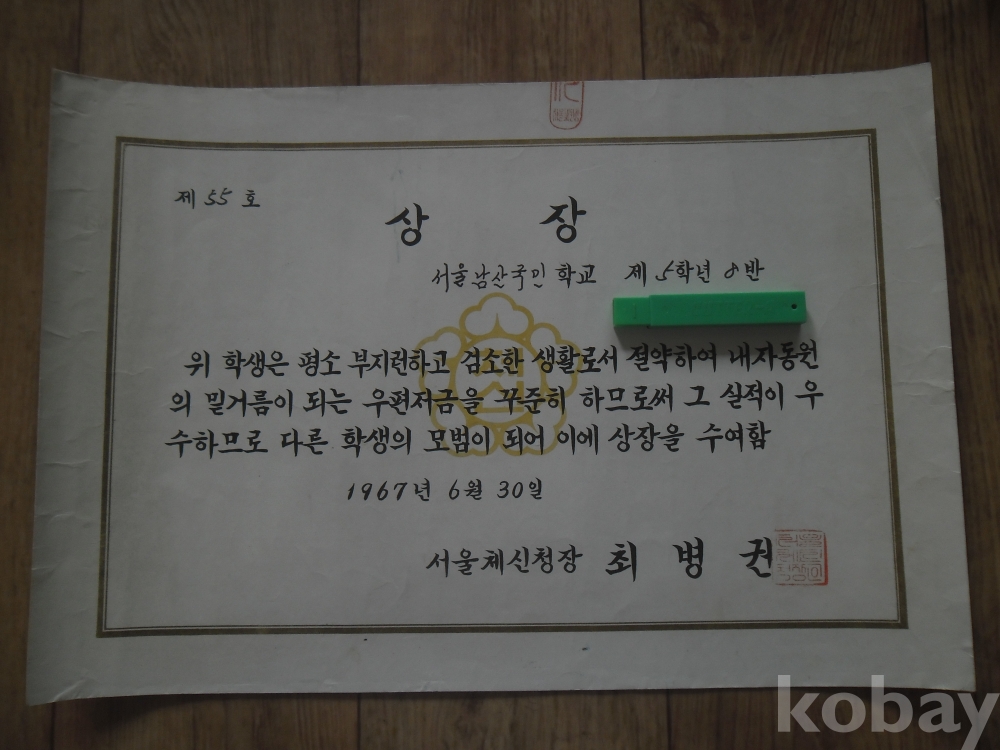 제 55 호
상 장
서울남산국민 학교 제 5학년 8반
위 학생은 평소 부지런하고 검소한 생활로서 절약하여 내자동원
의 밑거름이 되는 우편저금을 꾸준히 하므로써 그 실적이 우
수하므로 다른 학생의 모범이 되어 이에 상장을 수여함
1967년 6월 30일
서울체신청장 최 병 권
kobay